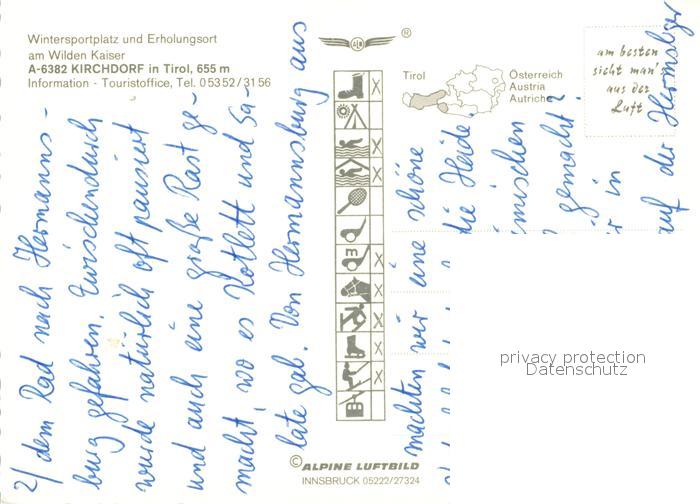 Wintersportplatz und Erholungsort
am Wilden Kaiser
A-6382 KIRCHDORF in Tirol, 655 m
Information - Touristoffice, Tel. 05352/3156
ALM
®
Tirol
Österreich
Austria
Autriche
am besten
sieht man's
aus der
Luft
2/ dem Rad nach Hermanns-
burg gefahren. Zwischendurch
wurde natürlich oft pausiert
und auch eine große Rast ge-
macht, wo es Kotlett und Sa-
late gab. Von Hermannsburg aus
machten wir eine schöne
die Heide.
gemacht?
in
auf der
m
© ALPINE LUFTBILD
INNSBRUCK 05222/27324
privacy protection
Datenschutz